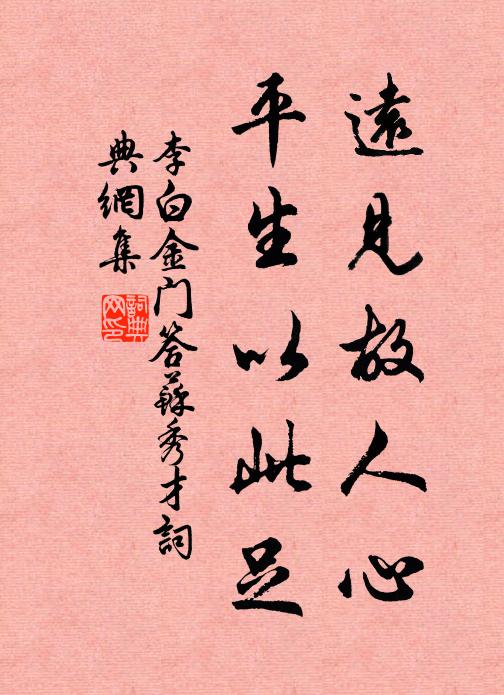 遠見故人心
平生以此足
李白金门答蘇秀才詞
典網集
詞典
网印